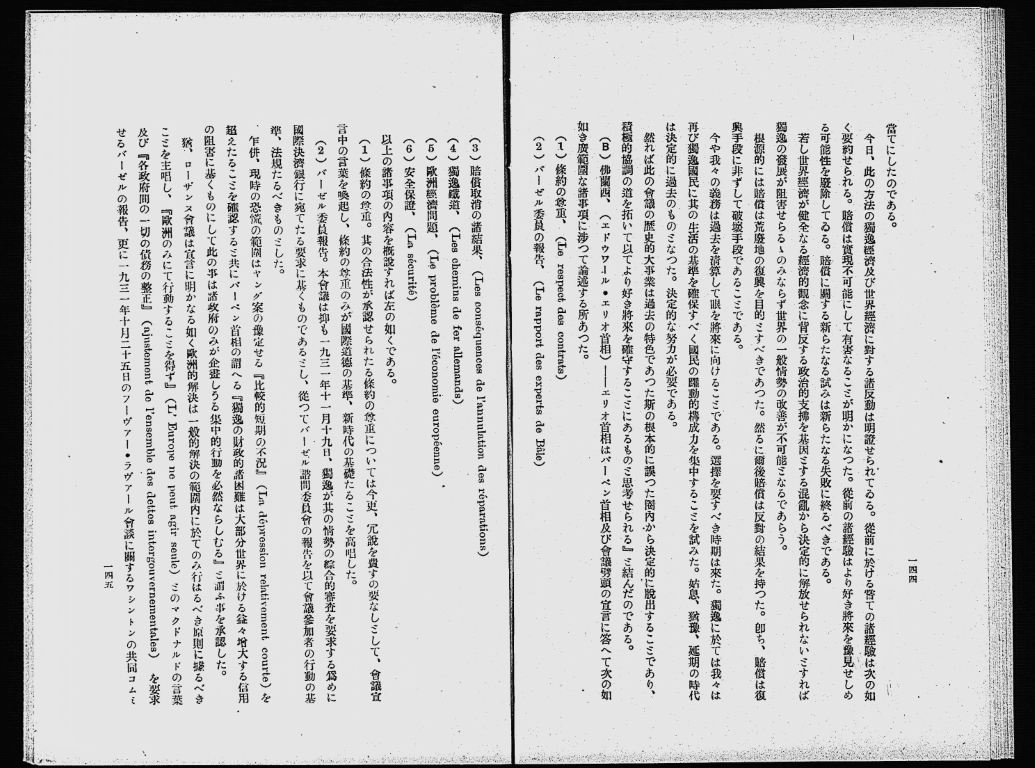 當てにしたのである。
今日、此の方法の獨逸經濟及び世界經濟に對する諸反動は明證せられてゐる。從前に於ける嘗ての諸經驗は次の如
く要約せられる。賠償は實現不可能にして有害なることが明かになつた。從前の諸經驗はより好き將來を豫見せしめ
る可能性を廢除してゐる。賠償に關する新らたなる試みは新らたなる失敗に終るべきである。
若し世界經濟が健全なる經濟的觀念に背反する政治的支拂を基因とする混亂から決定的に解放せられないとすれば
獨逸の發展が阻害せらるゝのみならず世界の一般情勢の改善が不可能となるであらう。
根源的には賠償は荒廢地の復興を目的とすべきであつた。然るに爾後賠償は反對の結果を持つた。卽ち、賠償は復
興手段に非ずして破壞手段であることである。
今や我々の義務は過去を清算して眼を將來に向けることである。選擇を要すべき時期は來た。獨逸に於ては我々は
再び獨逸國民に其の生活の基準を確保すべく國民の躍動的構成力を集中することを試みた。姑息、猶豫、延期の時代
は決定的に過去のものとなつた。決定的な努力が必要である。
然れば此の會議の歷史的大事業は過去の特色であつた斯の根本的に誤つた圈內から決定的に脫出することであり、
積極的協調の道を拓いて以てより好き將來を確守することにあるものと思考せられる』と結んだのである。
(B) 佛蘭西、(エドワール・エリオ首相)——エリオ首相はパーペン首相及び會議劈頭の宣言に答へて次の如
き廣範圍な諸事項に涉つて論述する所あつた。
(1) 條約の尊重、(Le respect des contrats)
(2) バーゼル委員の報告、(Le rapport des experts de Bâle)
一四四
(3) 賠償取消の諸結果、(Les conséquences de l'annulation des réparations)
(4) 獨逸鐵道、(Les chemins de fer allemands)
(5) 歐洲經濟問題、(Le problème de l'économie européenne)
(6) 安全保證、(La sécurité)
以上の諸事項の內容を槪說すれば左の如くである。
(1) 條約の尊重。其の合法性が承認せられたる條約の尊重については今更、冗說を費すの要なしとして、會議宣
言中の言葉を喚起し、條約の尊重のみが國際道德の基準、新時代の基礎たることを高唱した。
(2) バーゼル委員報告。本會議は抑も一九三一年十一月十九日、獨逸が其の情勢の綜合的審査を要求する爲めに
國際決濟銀行に宛てたる要求に基くものであるとし、從つてバーゼル諮問委員會の報告を以て會議參加者の行動の基
準、法規たるべきものとした。
乍併、現時の恐慌の範圍はヤング案の豫定せる『比較的短期の不況』(La dépression relativement courte) を
超えたることを確認すると共にパーペン首相の謂へる『獨逸の財政的諸困難は大部分世界に於ける益々增大する信用
の阻害に基くものにして此の事は諸政府のみが企畫しうる集中的行動を必然ならしむる』と謂ふ事を承認した。
猶、ローザンヌ會議は宣言に明かなる如く歐洲的解決は一般的解決の範圍內に於てのみ行はるべき原則に據るべき
ことを主唱し、『歐洲のみにて行動することを得ず』(L'Europe ne peut agir seule) とのマクドナルドの言葉
及び『各政府間の一切の債務の整正』(ajustement de l'ensemble des dettes intergouvernementales) を要求
せるバーゼルの報吿、更に一九三一年十月二十五日のフーヴァー・ラヴァール會談に關するワシントンの共同コムミ
一四五